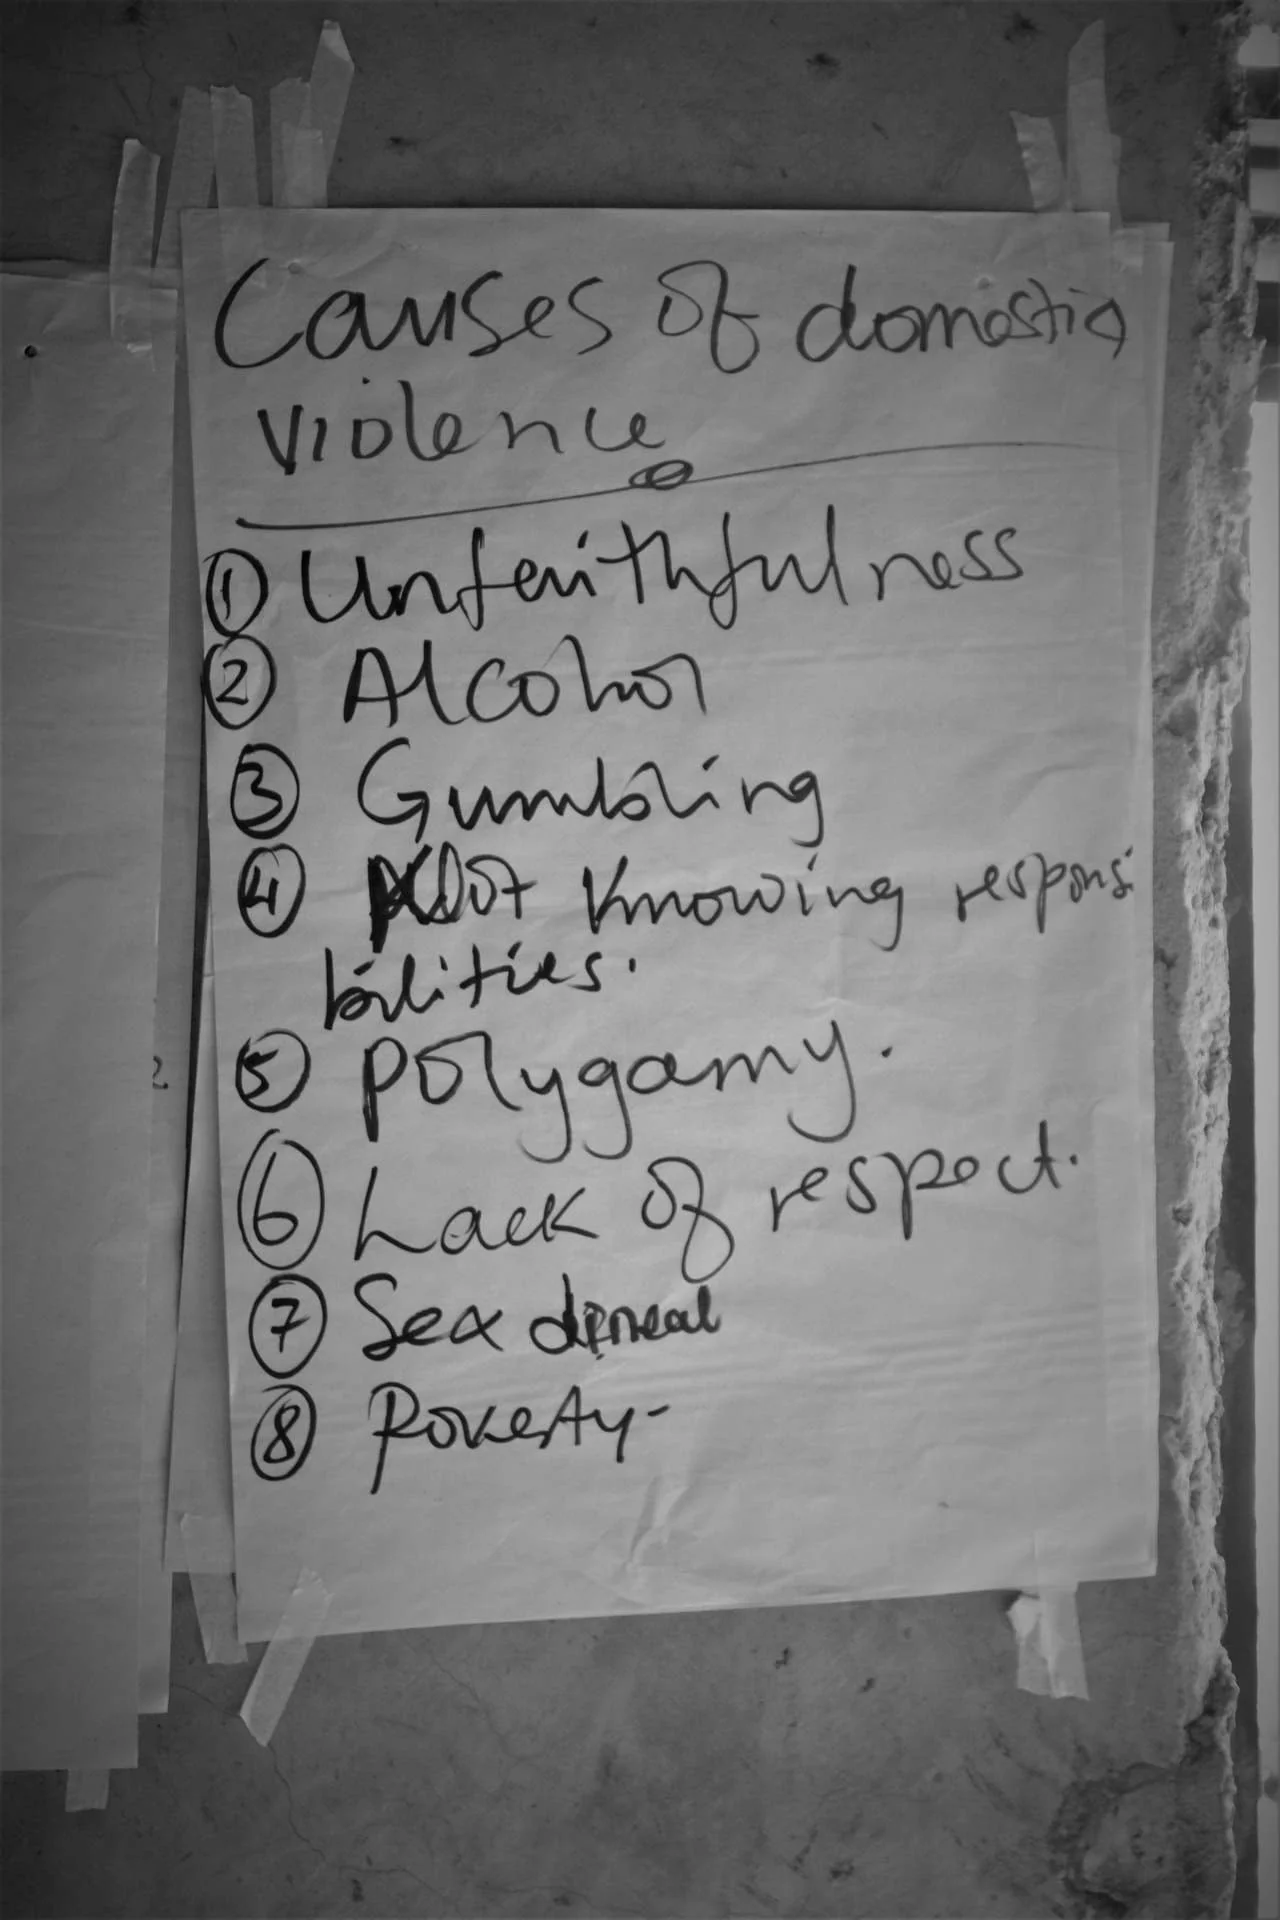 Causes of domestic
violence
① Unfaithfulness
② Alcohol
③ Gumbling
④ Not Knowing responsi
bilities.
⑤ Polygamy.
⑥ Lack of respect.
⑦ Sex
⑧ Poverty-
2